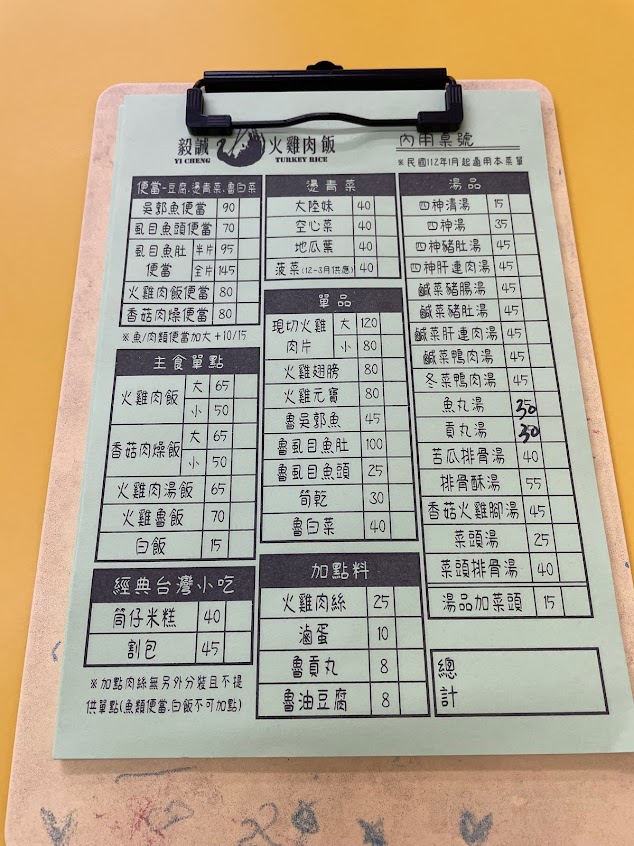 毅誠 火雞肉飯
YI CHENG TURKEY RICE
內用桌號
※民國112年1月起適用本菜單
便當-豆腐.燙青菜.魯白菜
吳郭魚便當 90
虱目魚頭便當 70
虱目魚肚便當 半片 95
全片 145
火雞肉飯便當 80
香菇肉燥便當 80
※魚/肉類便當加大+10/15
主食單點
火雞肉飯 大 65
小 50
香菇肉燥飯 大 65
小 50
火雞肉湯飯 65
火雞魯飯 70
白飯 15
經典台灣小吃
筒仔米糕 40
割包 45
※加點肉絲無另外分裝且不提
供單點(魚類便當.白飯不可加點)
燙青菜
大陸妹 40
空心菜 40
地瓜葉 40
菠菜(12-3月供應) 40
單品
現切火雞肉片 大 120
小 80
火雞翅膀 80
火雞元寶 80
魯吳郭魚 45
魯虱目魚肚 100
魯虱目魚頭 25
筍乾 30
魯白菜 40
加點料
火雞肉絲 25
滷蛋 10
魯貢丸 8
魯油豆腐 8
湯品
四神清湯 15
四神湯 35
四神豬肚湯 45
四神肝連肉湯 45
鹹菜豬腸湯 45
鹹菜豬肚湯 45
鹹菜肝連肉湯 45
鹹菜鴨肉湯 45
冬菜鴨肉湯 45
魚丸湯 30
貢丸湯 30
苦瓜排骨湯 40
排骨酥湯 55
香菇火雞腳湯 45
菜頭湯 25
菜頭排骨湯 40
湯品加菜頭 15
總計